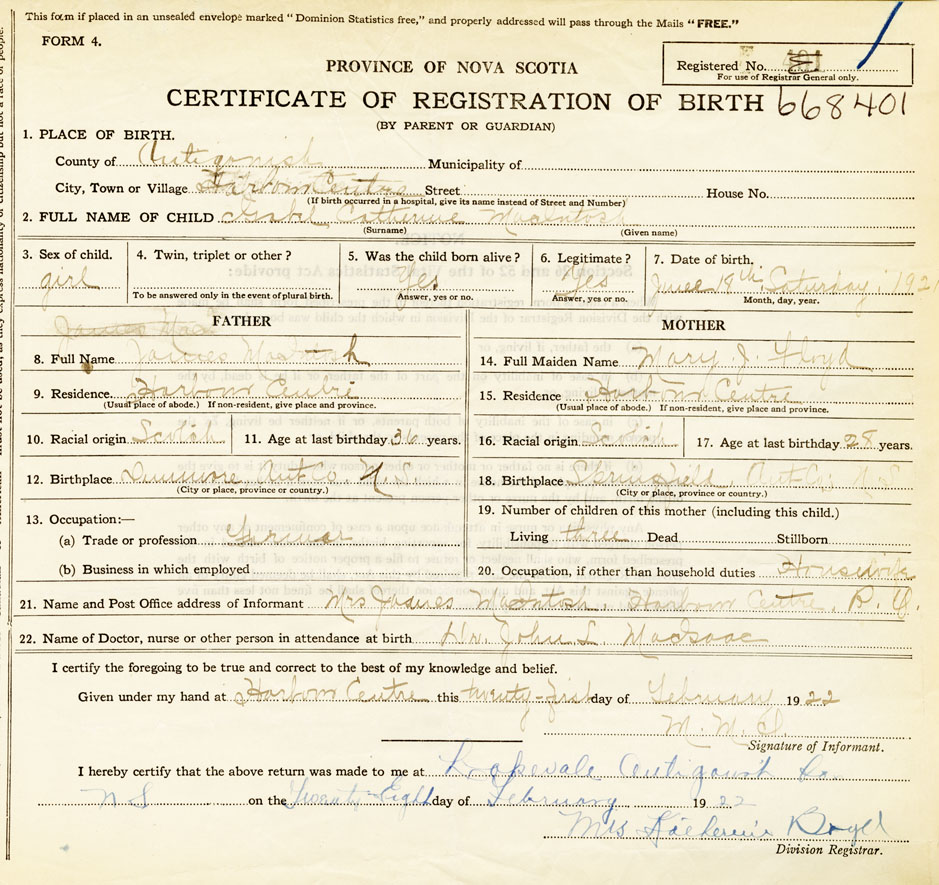 This form if placed in an unsealed envelope marked "Dominion Statistics free," and properly addressed will pass through the Mails "FREE."
FORM 4.
PROVINCE OF NOVA SCOTIA
Registered No.
For use of Registrar General only.
CERTIFICATE OF REGISTRATION OF BIRTH 668401
(BY PARENT OR GUARDIAN)
1. PLACE OF BIRTH.
County of Antigonish Municipality of
City, Town or Village Harbour Centre Street House No.
(If birth occurred in a hospital, give its name instead of Street and Number)
2. FULL NAME OF CHILD Isabel Catherine MacIntosh
(Surname) (Given name)
3. Sex of child. girl
4. Twin, triplet or other?
To be answered only in the event of plural birth.
5. Was the child born alive? Yes
Answer, yes or no.
6. Legitimate? Yes
Answer, yes or no.
7. Date of birth. June 18th Saturday, 1921
Month, day, year.
James Mac
FATHER
8. Full Name James MacIntosh
9. Residence Harbour Centre
(Usual place of abode.) If non-resident, give place and province.
10. Racial origin Scotish 11. Age at last birthday 36 years.
12. Birthplace Dunmore Ant Co. N.S.
(City or place, province or country.)
13. Occupation:—
(a) Trade or profession Farmer
(b) Business in which employed
MOTHER
14. Full Maiden Name Mary J. Floyd
15. Residence Harbour Centre
(Usual place of abode.) If non-resident, give place and province.
16. Racial origin Scotish 17. Age at last birthday 28 years.
18. Birthplace Springfield, Ant Co. N S
(City or place, province or country.)
19. Number of children of this mother (including this child.)
Living three Dead Stillborn
20. Occupation, if other than household duties Housewife
21. Name and Post Office address of Informant Mrs James MacIntosh, Harbour Centre,
22. Name of Doctor, nurse or other person in attendance at birth Dr. John L. MacIsaac
I certify the foregoing to be true and correct to the best of my knowledge and belief.
Given under my hand at Harbour Centre this twenty-first day of February 1922
M. M. I.
Signature of Informant.
I hereby certify that the above return was made to me at Lakevale Antigonish Co
N S on the Twenty Eight day of February 1922
Mrs Katherine Boyd
Division Registrar.